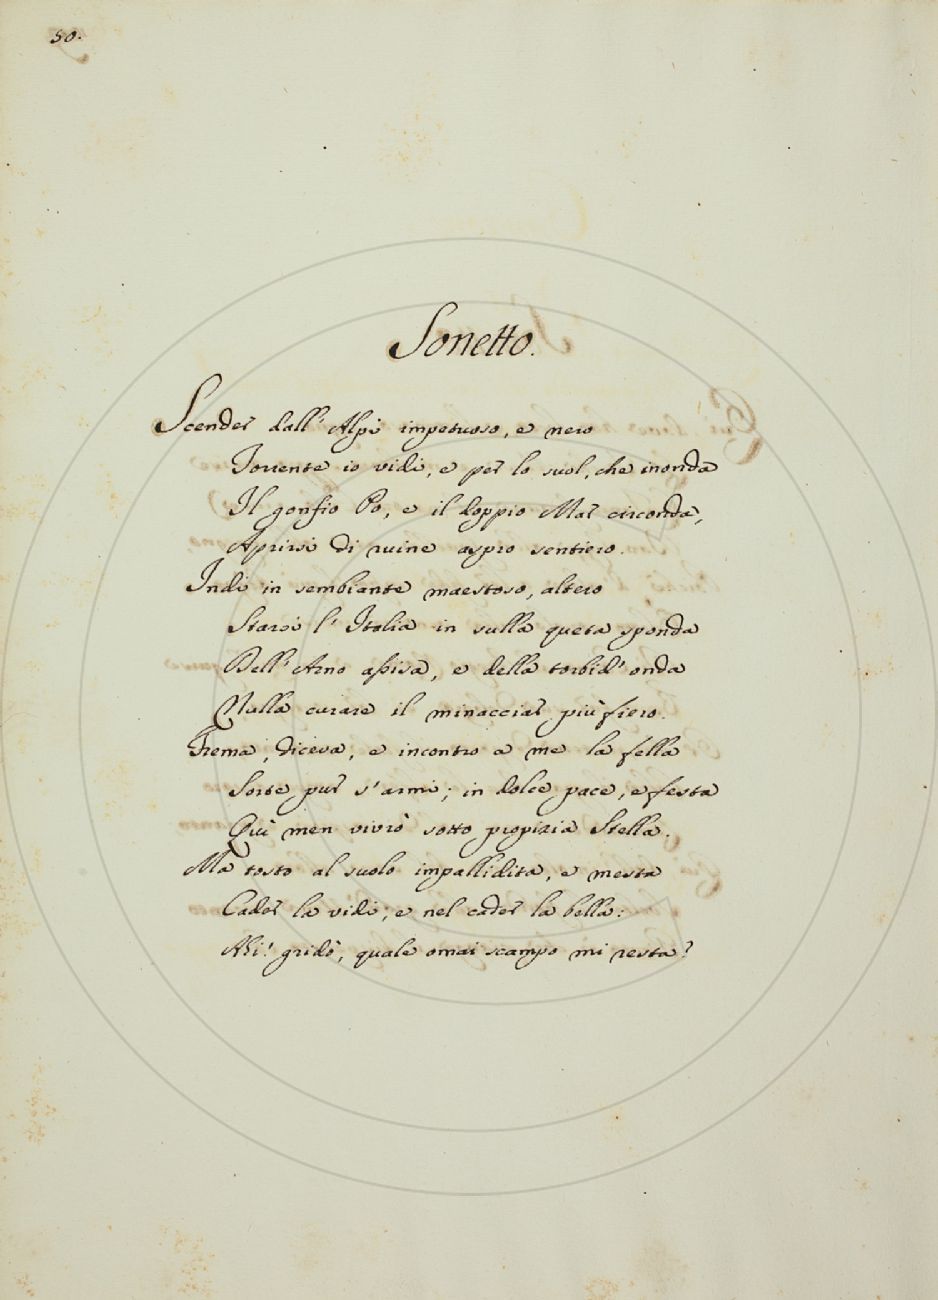 50.
Sonetto.
Scender dall' Alpi impetuoso, e nero
Torrente io vidi, e per lo suol, che inonda
Il gonfio Po, e il doppio Mar circonda,
Aprirsi di ruine aspro sentiero.
Indi in sembiante maestoso, altero
Starsi l' Italia in sulla queta sponda
Dell' Arno assisa, e della torbid' onda
Nulla curare il minacciar più fiero.
Frema, diceva, e incontro a me la fella
Sorte pur s' armi; in dolce pace, e festa
Quì men vivrò sotto propizia Stella.
Ma tosto al suolo impallidita, e mesta
Cader la vidi; e nel cader la bella:
Ahi! gridò, quale omai scampo mi resta?